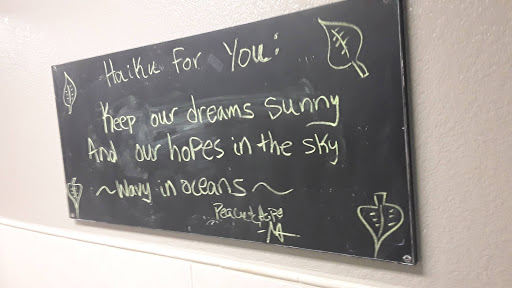 Haiku For You:
Keep our dreams sunny
And our hopes in the sky
~Wavy in oceans~